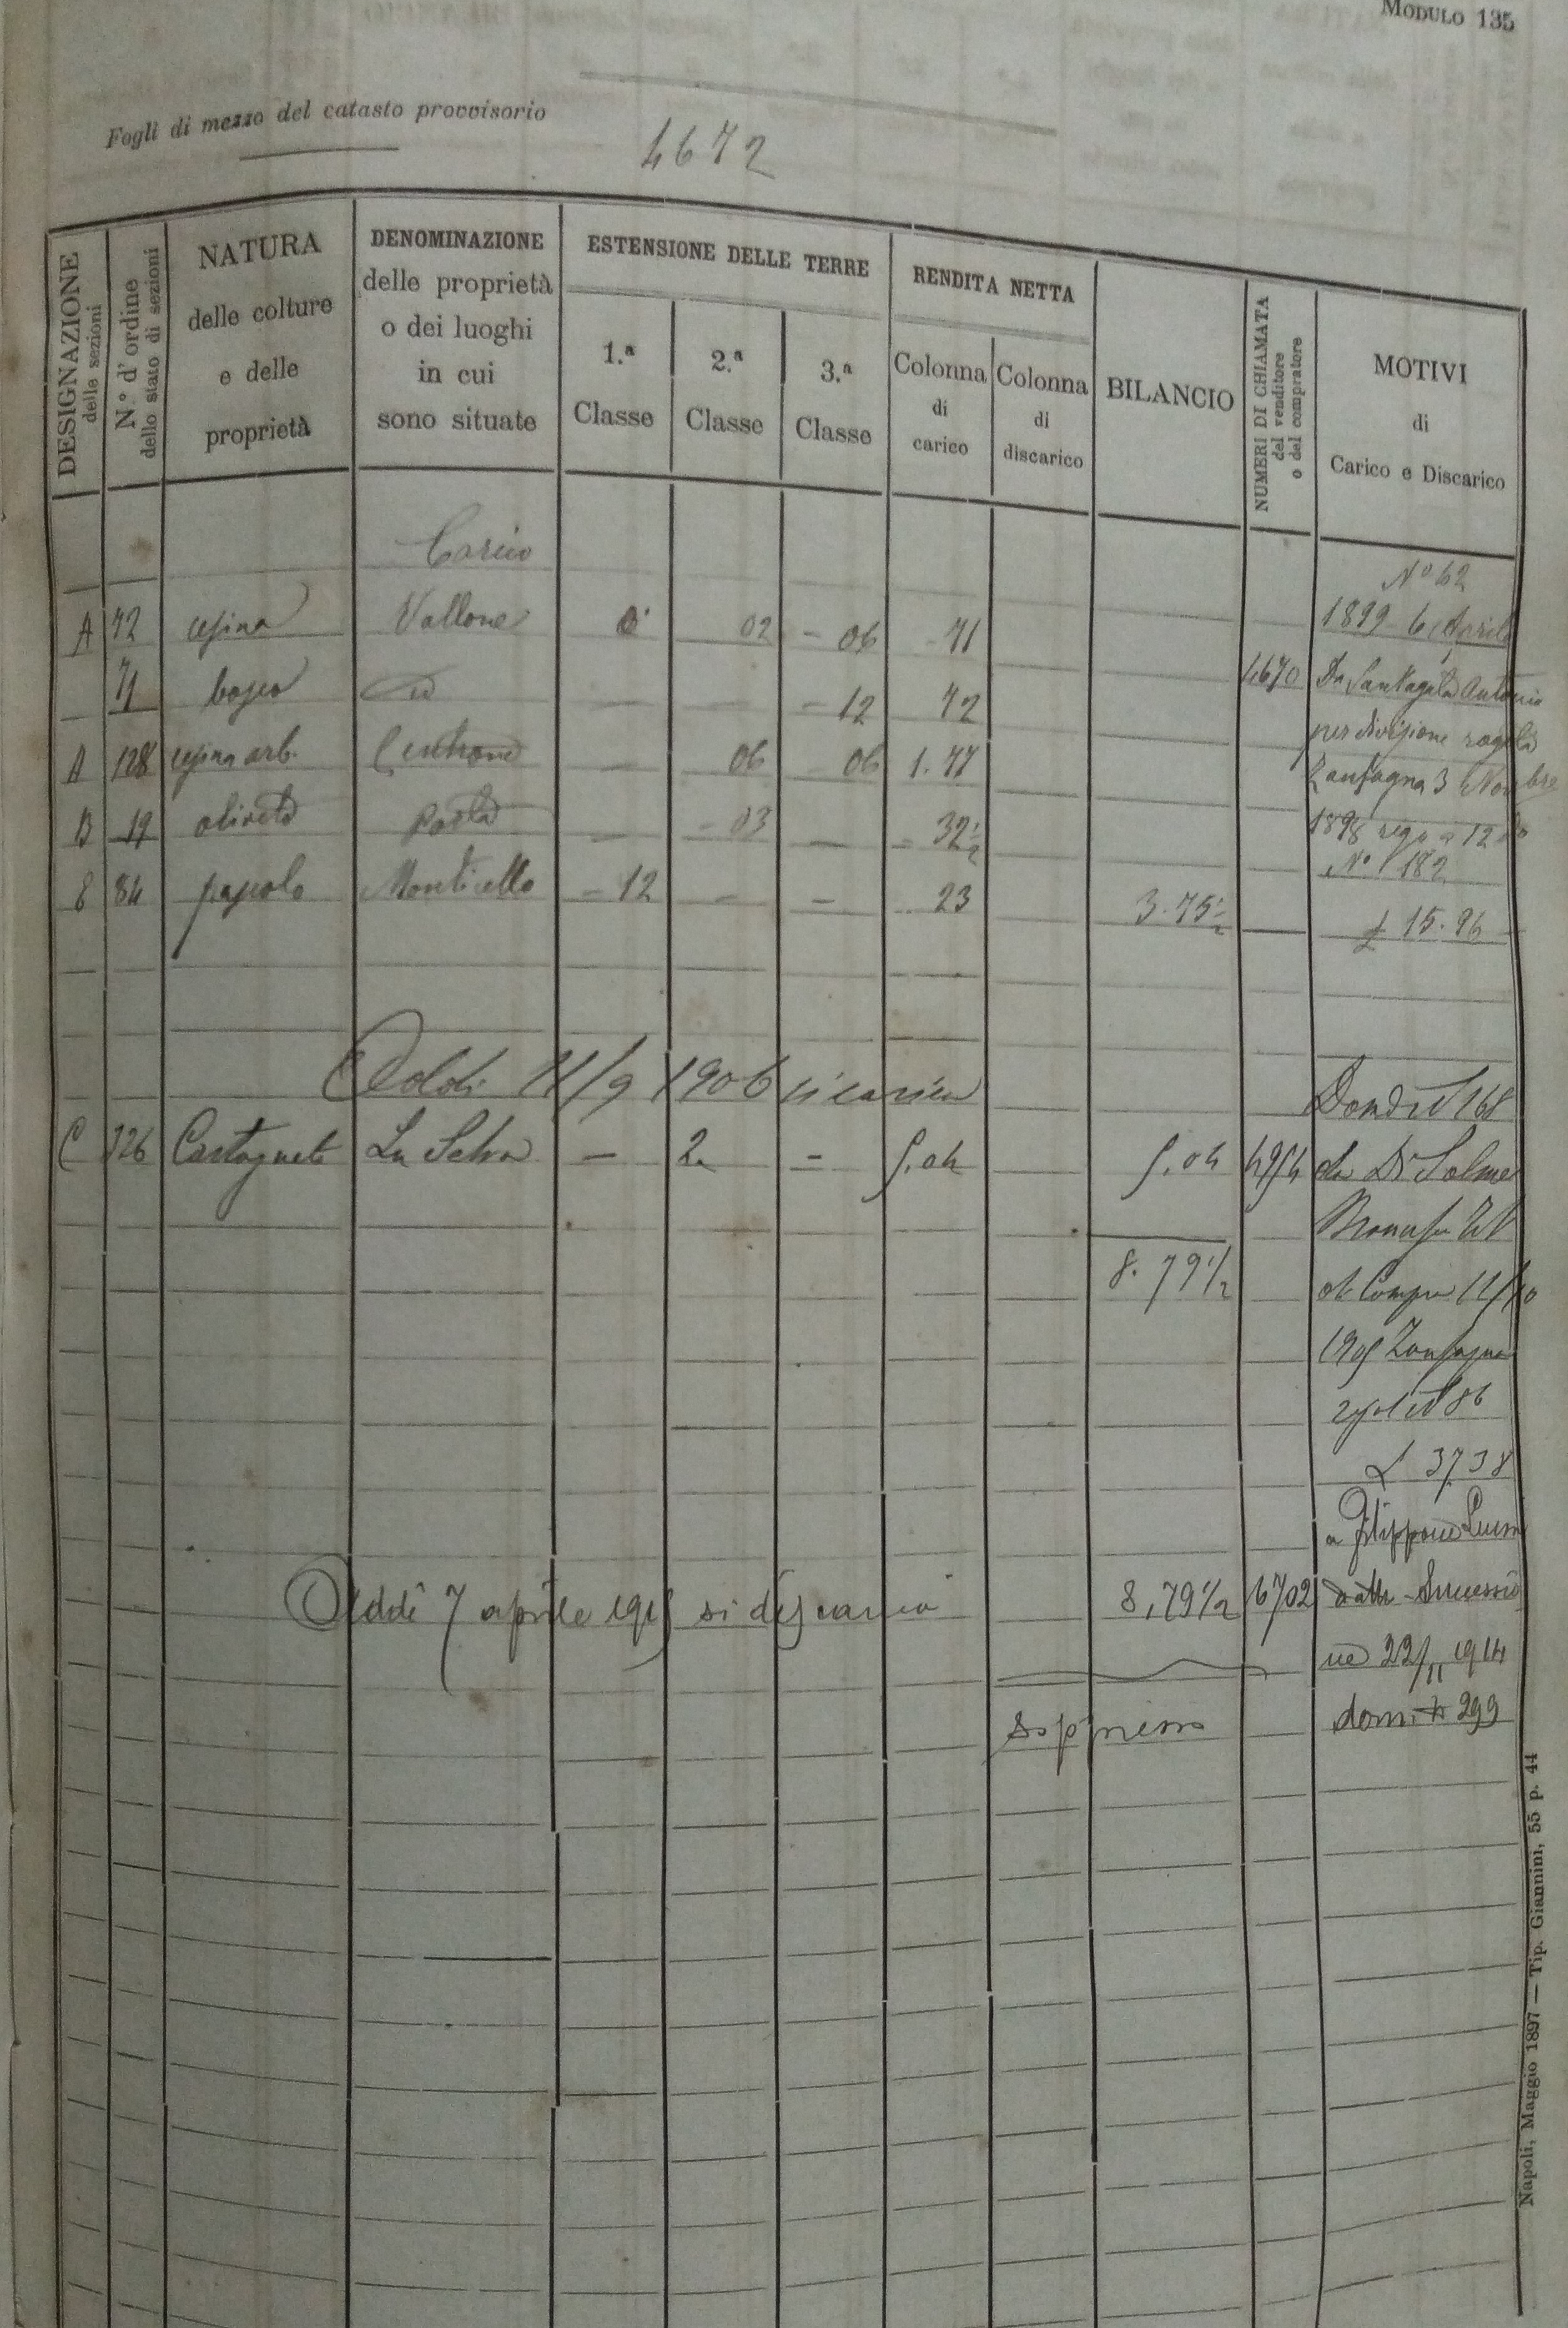 MODULO 135
Fogli di mezzo del catasto provvisorio
4672
DESIGNAZIONE delle sezioni
N.° d'ordine dello stato di sezioni
NATURA delle colture e delle proprietà
DENOMINAZIONE delle proprietà o dei luoghi in cui sono situate
ESTENSIONE DELLE TERRE
1.ª Classe
2.ª Classe
3.ª Classe
RENDITA NETTA
Colonna di carico
Colonna di discarico
BILANCIO
NUMERI DI CHIAMATA del venditore o del compratore
MOTIVI di Carico e Discarico
Carico
N° 62
A 72 cesina Vallone 02 - 06 - 71
1899 6 Aprile
71 bosco id - - - 12 42
4670 Da Santagata Antonio
A 128 cesina arb. - 06 06 1.77
per divisione rogata
Zanfagna 3 Novembre
B 19 oliveto - - 03 - - 32½
1898 12
N° 182
E 84 Monticello - 12 - - 23 3.75½
£ 15.96
Addi 11/9 1906 si carica
Domda N 168
C 326 Castagneto La Selva - 2 - 5.04 5.04 4954
8.79½
di Compra 11/10
1905 Zanfagna
N 86
£ 37.38
a Filippone
Addì 7 aprile 1915 si discarica 8,79½ 6702
Successio
ne 22/11 1914
soppresso
dom. N 299
Napoli, Maggio 1897 — Tip. Giannini, 55 p. 44